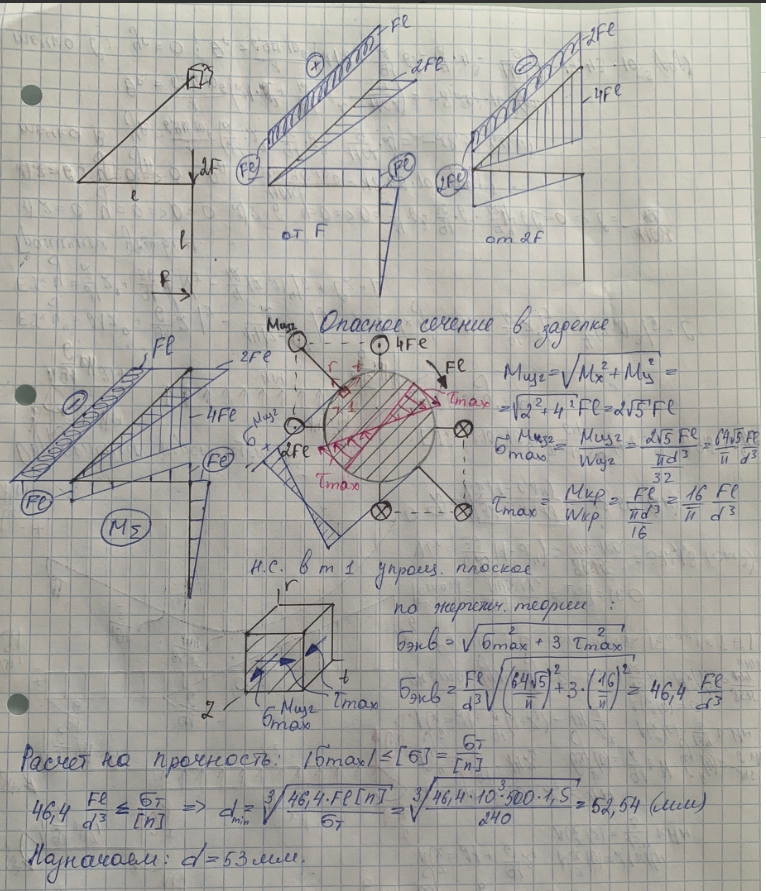 2F
l
l
F
⊕
Fl
2Fl
Fl
Fl
от F
⊖
2Fl
4Fl
2Fl
от 2F
Опасное сечение в заделке
⊖
Fl
2Fl
4Fl
Fl
Fl
MΣ
Mизг
4Fl
Fl
r
t
1
τmax
σ Mизг
2Fl
τmax
Mизг = √(Mx² + My²) =
= √(2² + 4²) Fl = 2√5 Fl
σmax Mизг = Mизг / Wизг = 2√5 Fl / (πd³/32) = 64√5/π Fl/d³
τmax = Mкр / Wкр = Fl / (πd³/16) = 16/π Fl/d³
Н.С. в т 1 упрощ. плоское
r
t
z
σmax Mизг
τmax
по энергетич. теории :
σэкв = √(σmax² + 3 τmax²)
σэкв = Fl/d³ √((64√5/π)² + 3·(16/π)²) = 46,4 Fl/d³
Расчет на прочность: |σmax| ≤ [σ] = σт/[n]
46,4 Fl/d³ ≤ σт/[n] => dmin = ³√(46,4·Fl[n]/σт) = ³√(46,4·10³·500·1,5/240) = 52,54 (мм)
Назначаем: d = 53 мм.